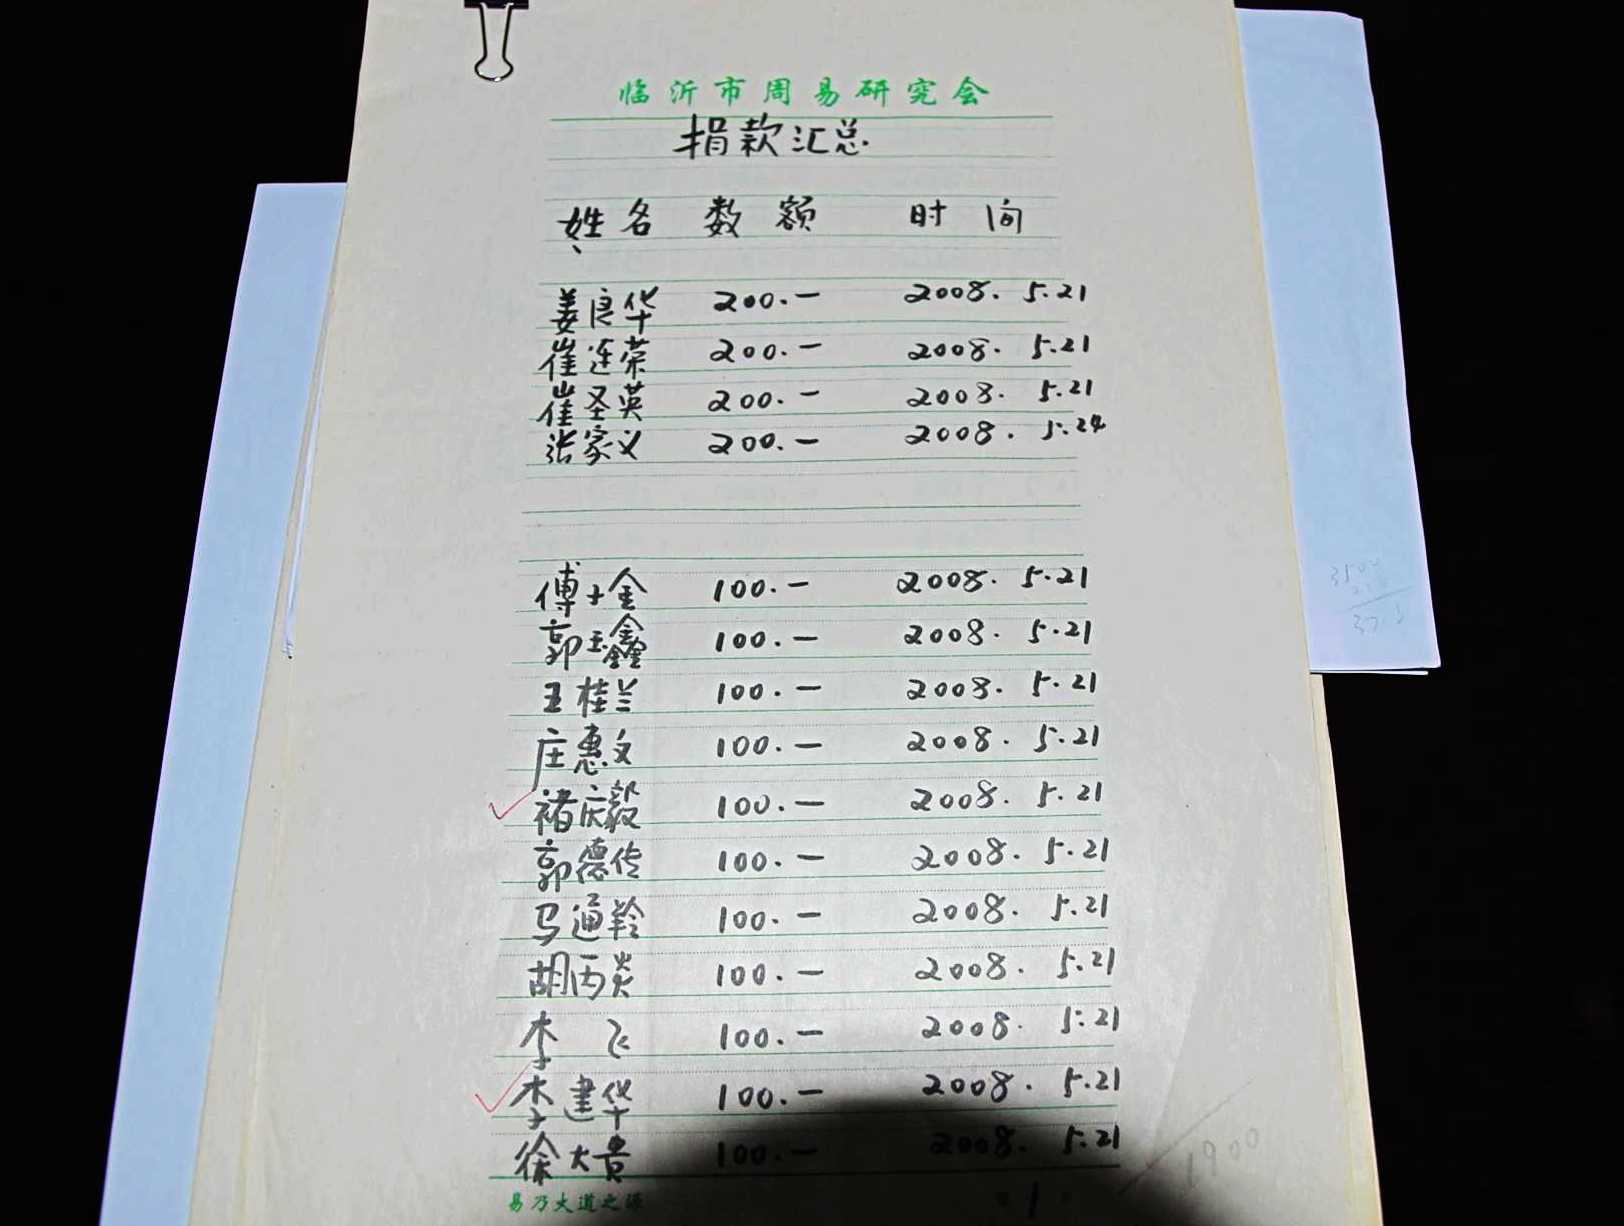 临沂市周易研究会
捐款汇总
姓名 数额 时间
姜良华 200.— 2008. 5.21
崔连荣 200.— 2008. 5.21
崔圣英 200.— 2008. 5.21
张家义 200.— 2008. 5.24
傅士金 100.— 2008. 5.21
郭玉鑫 100.— 2008. 5.21
王桂兰 100.— 2008. 5.21
庄惠文 100.— 2008. 5.21
褚庆毅 100.— 2008. 5.21
郭德伦 100.— 2008. 5.21
马通羚 100.— 2008. 5.21
胡丙炎 100.— 2008. 5.21
李飞 100.— 2008. 5.21
李建华 100.— 2008. 5.21
徐大贵 100.— 2008. 5.21
易乃大道之源
1
1900